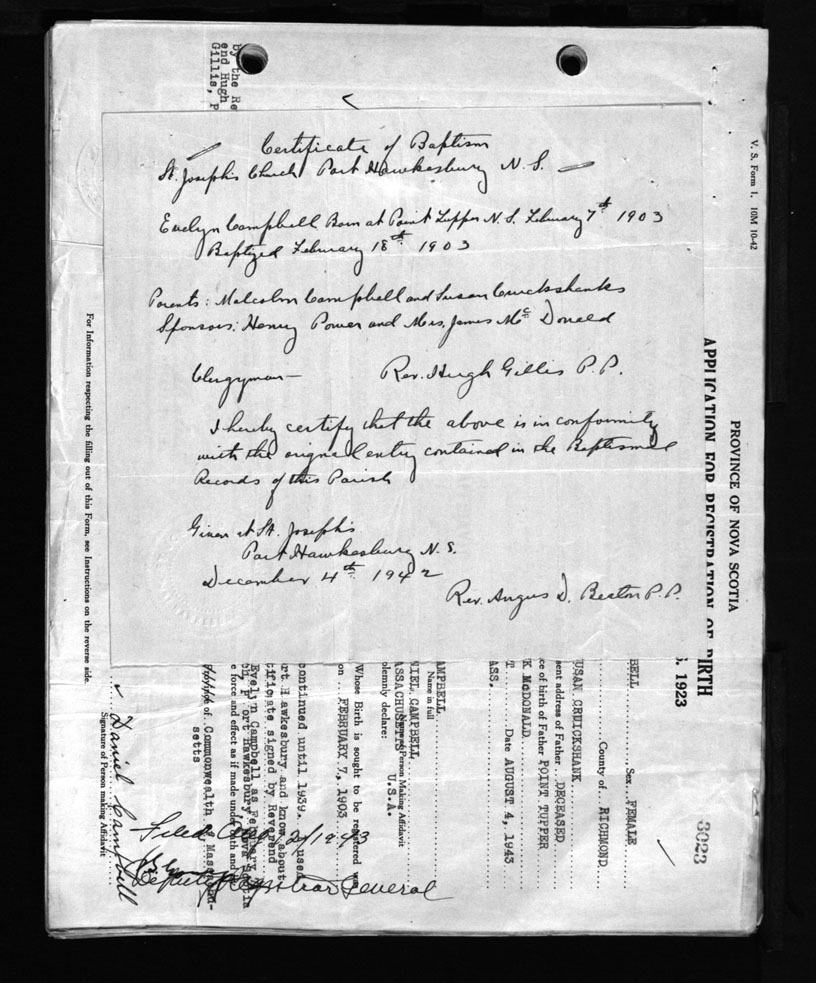 Certificate of Baptism
St. Joseph's Church Port Hawkesbury N. S.
Evelyn Campbell Born at Point Tupper N. S. February 7th 1903
Baptized February 18th 1903
Parents: Malcolm Campbell and Susan Cruickshanks
Sponsors: Henry Power and Mrs. James Mc Donald
Clergyman — Rev. Hugh Gillis P. P.
I hereby certify that the above is in conformity
with the original entry contained in the Baptismal
Records of this Parish
Given at St. Joseph's
Port Hawkesbury N. S.
December 4th 1942
Rev. Angus D. Beaton P. P.
by the Re
end Hugh
Gillis, P
V. S. Form 1. 10M 10-42
PROVINCE OF NOVA SCOTIA
APPLICATION FOR REGISTRATION OF BIRTH
3023
1923
BELL Sex FEMALE
County of RICHMOND
USAN CRUICKSHANK
sent address of Father DECEASED
ce of birth of Father POINT TUPPER
K McDONALD
T. Date AUGUST 4, 1943
ASS.
AMPBELL
Name in full
NIEL CAMPBELL
Person Making Affidavit
ASSACHUSETTS U.S.A.
olemnly declare:
Whose Birth is sought to be registered was
on FEBRUARY 7, 1903
continued until 1939. used
rt Hawkesbury and know about
tificate signed by Reverend
Evelyn Campbell as February
ch, Port Hawkesbury, Nova Scotia
e force and effect as if made under oath and
of Commonwealth of Massachu-
setts
Daniel Campbell
Signature of Person making Affidavit
Filed 1943
Deputy Registrar General
For Information respecting the filling out of this Form, see Instructions on the reverse side.